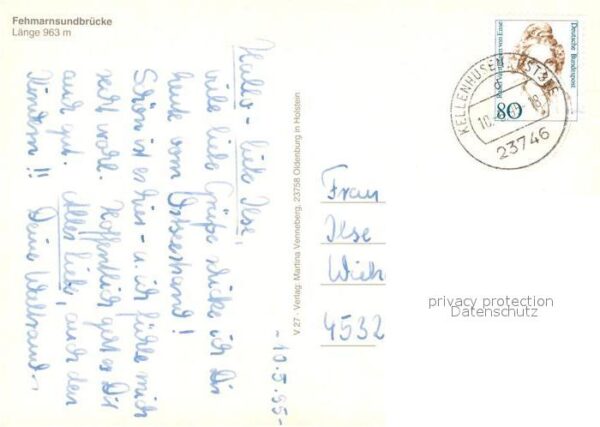 Fehmarnsundbrücke
Länge 963 m
Hallo - liebe Ilse,
viele liebe Grüße schicke ich Dir
heute vom Ostseestrand!
Schön ist es hier - u. ich fühle mich
sehr wohl. Hoffentlich geht es Dir
auch gut. Alles Liebe, auch den
Kindern!! Deine Waltraud.
-10.5.95-
V 27 - Verlag: Martina Venneberg, 23758 Oldenburg in Holstein
Deutsche Bundespost
80
KELLENHUSEN, OSTSEE
10.
18
23746
Frau
Ilse
4532
privacy protection
Datenschutz